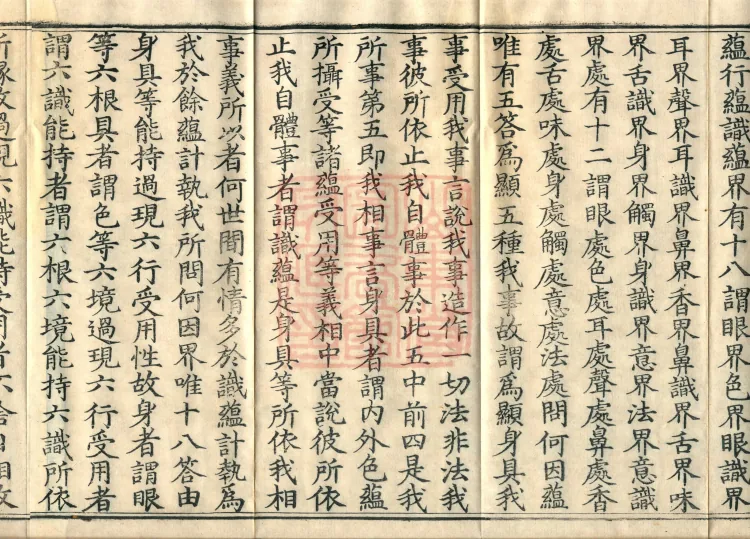 蘊行蘊識蘊界有十八謂眼界色界眼識界
耳界聲界耳識界鼻界香界鼻識界舌界味
界舌識界身界觸界身識界意界法界意識
界處有十二謂眼處色處耳處聲處鼻處香
處舌處味處身處觸處意處法處問何因蘊
唯有五答爲顯五種我事故謂爲顯身具我
事受用我事言說我事造作一切法非法我
事彼所依止我自體事於此五中前四是我
所事第五即我相事言身具者謂內外色蘊
所攝受等諸蘊受用等義相中當說彼所依
止我自體事者謂識蘊是身具等所依我相
事義所以者何世間有情多於識蘊計執爲
我於餘蘊計執我所問何因界唯十八答由
身具等能持過現六行受用性故身者謂眼
等六根具者謂色等六境過現六行受用者
謂六識能持者謂六根六境能持六識所依
所緣故過現六識能持受用者不捨自相故